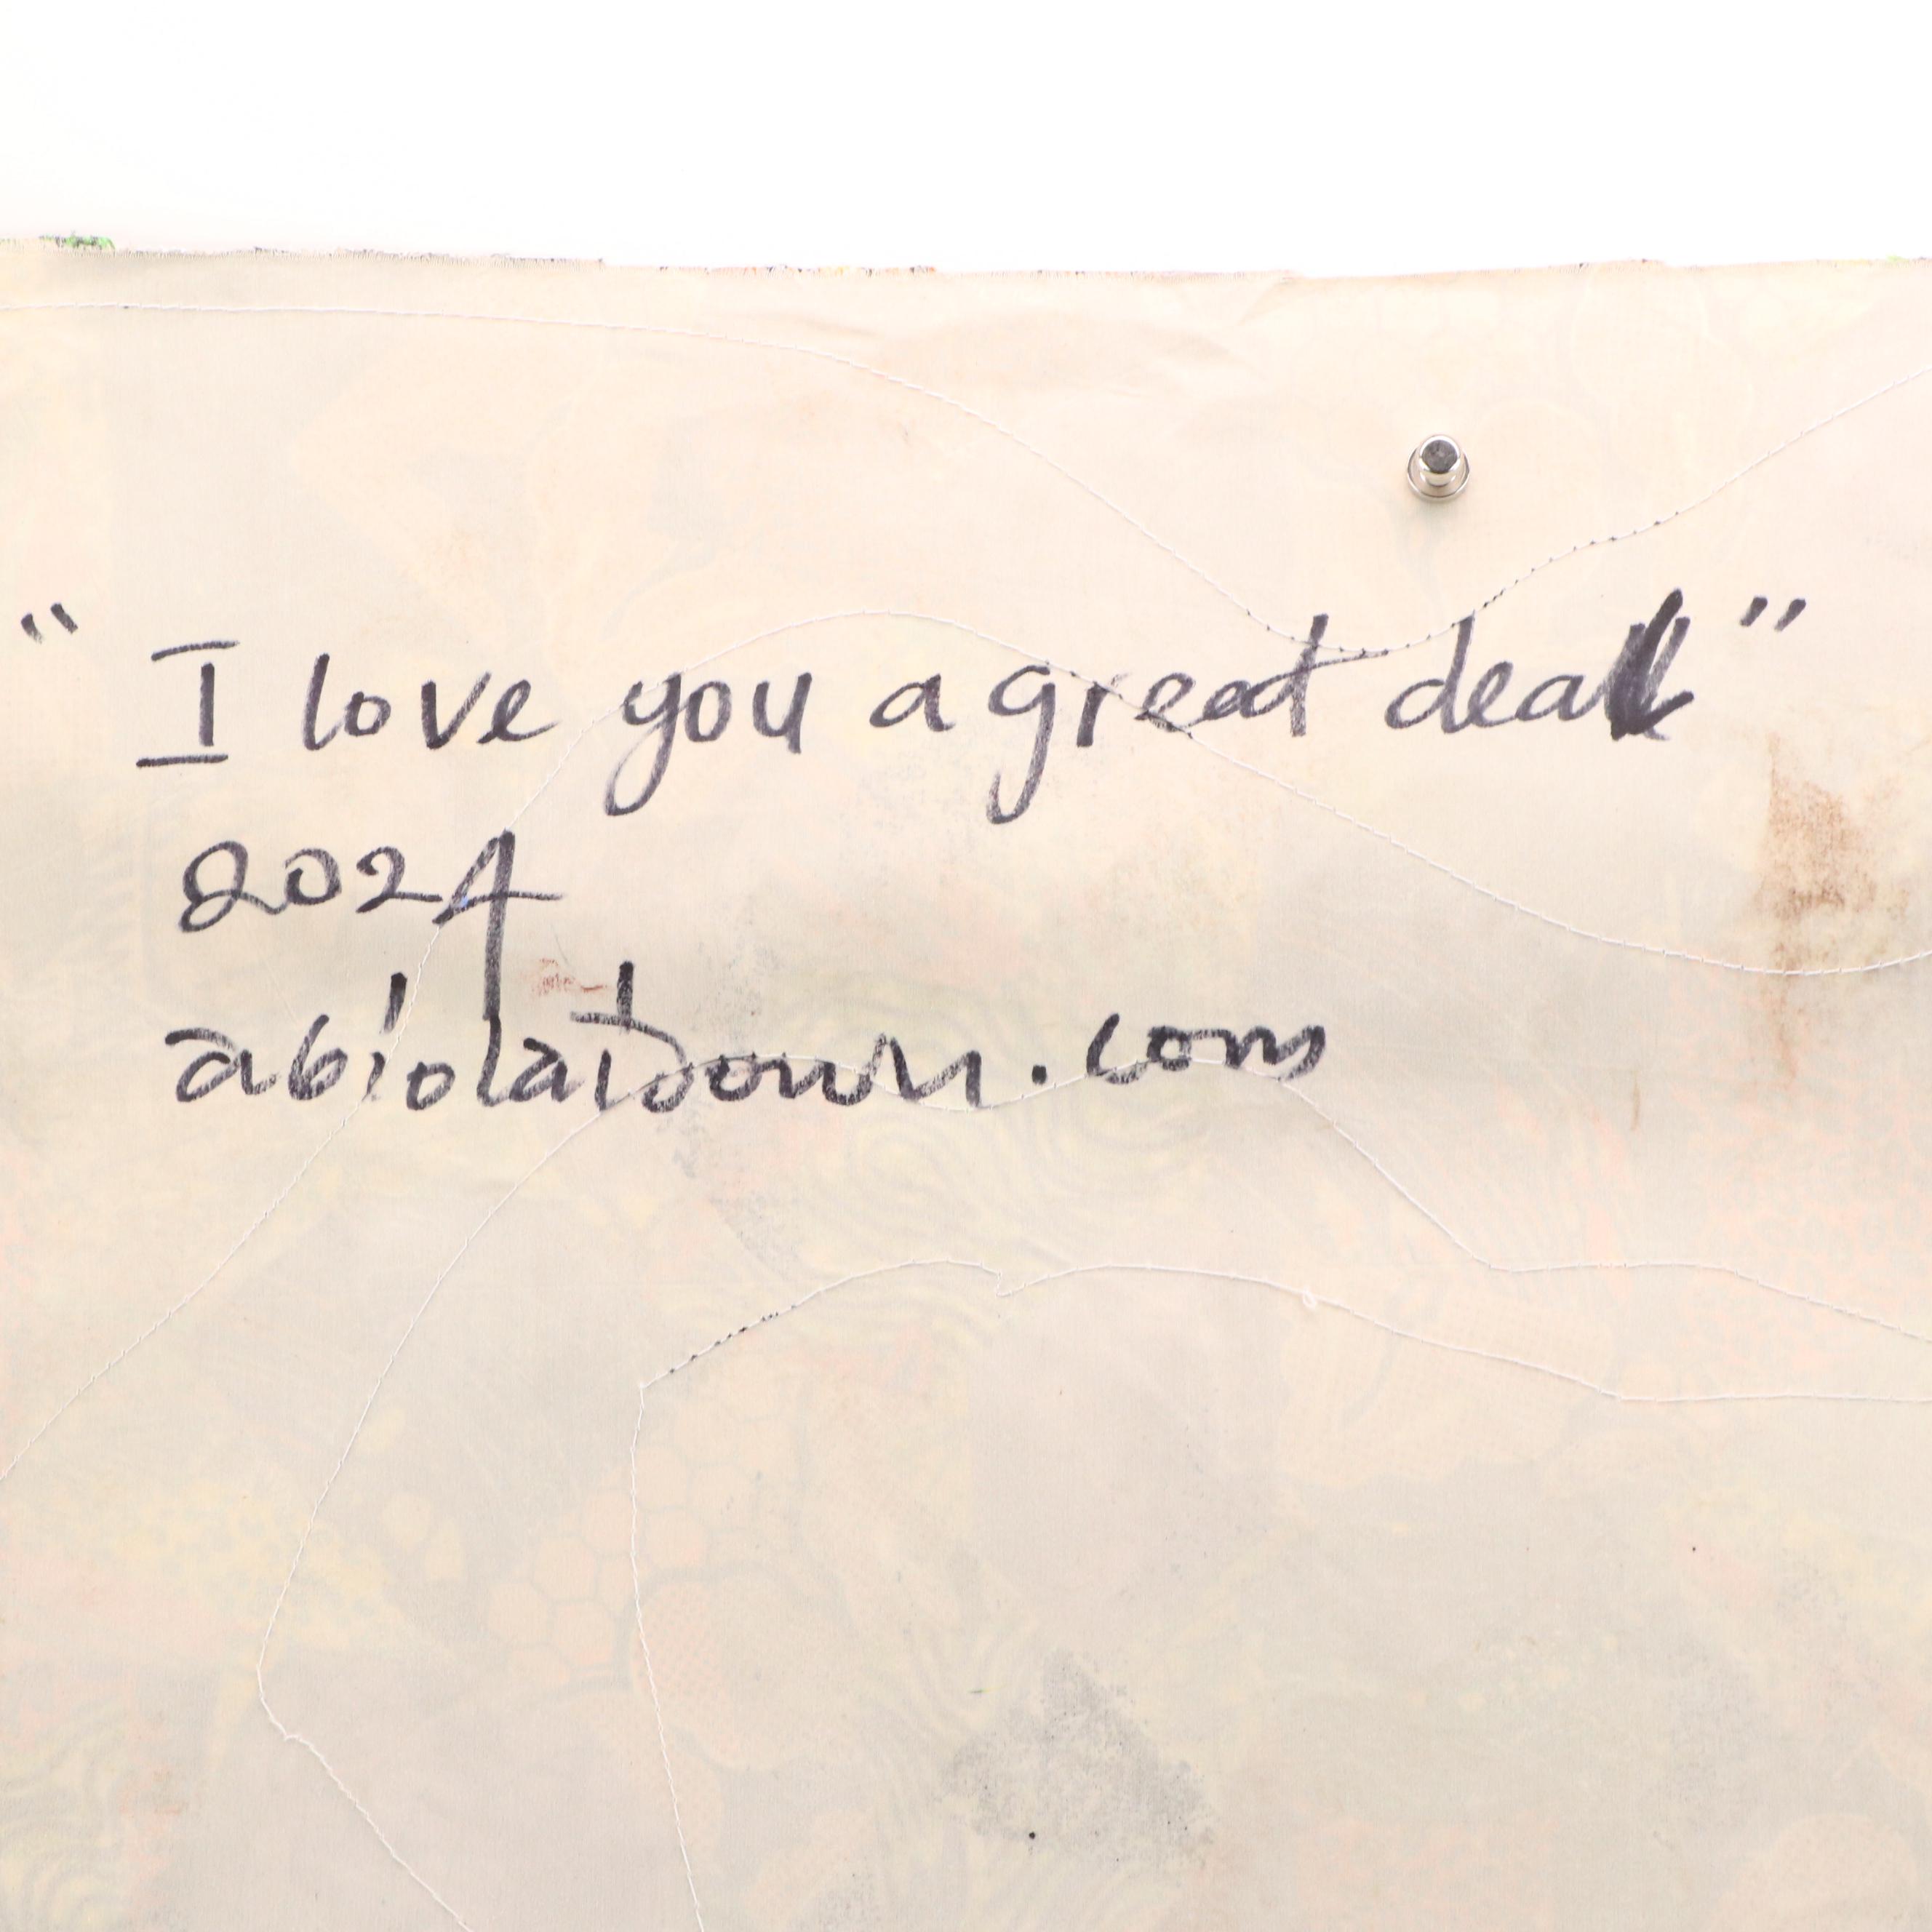 " I love you a great deal "
2024
abiolatdown.com